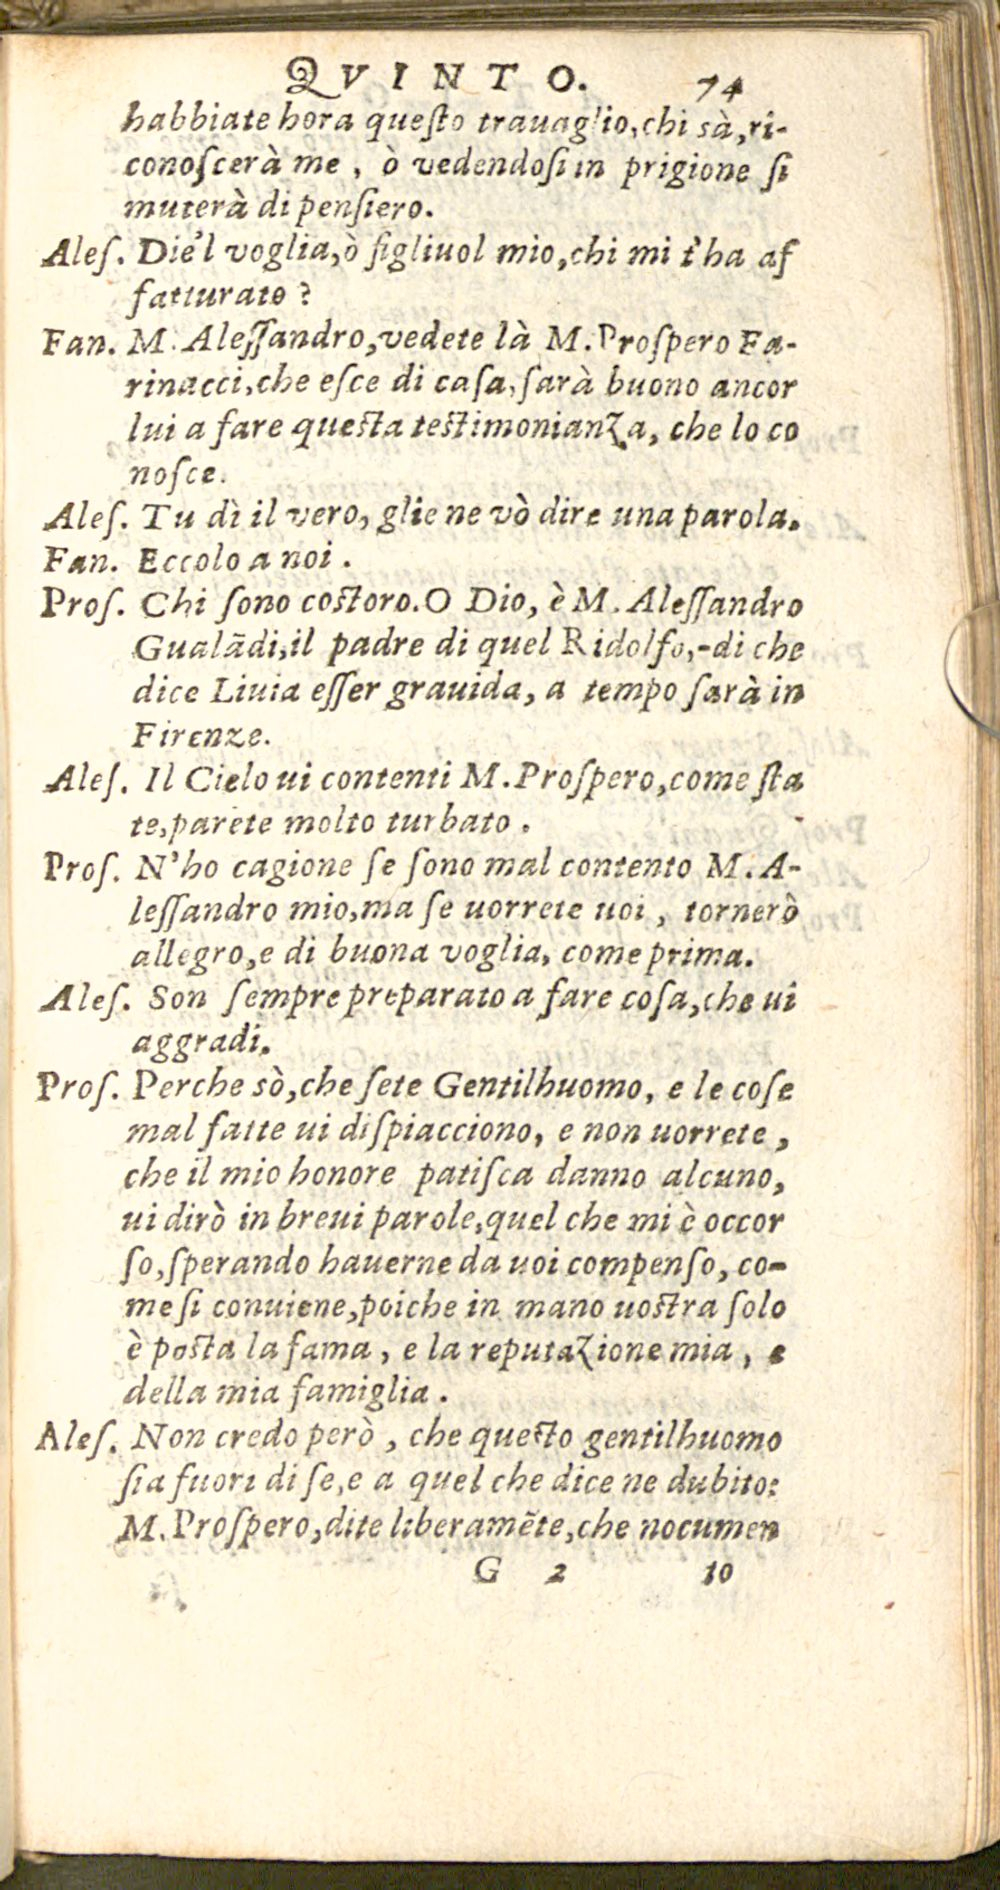 QVINTO. 74
habbiate hora queſto trauaglio,chi sà,ri-
conoſcerà me , ò vedendoſi in prigione ſi
muterà di penſiero.
Aleſ. Die'l voglia,ò figliuol mio,chi mi t'ha af
fatturato ?
Fan. M. Aleſſandro,vedete là M. Proſpero Fa-
rinacci,che eſce di caſa,ſarà buono ancor
lui a fare queſta teſtimonianza, che lo co
noſce.
Aleſ. Tu dì il vero, glie ne vò dire una parola.
Fan. Eccolo a noi .
Proſ. Chi ſono coſtoro.O Dio, è M. Aleſſandro
Gualãdi,il padre di quel Ridolfo,-di che
dice Liuia eſſer grauida, a tempo ſarà in
Firenze.
Aleſ. Il Cielo ui contenti M.Proſpero,come ſta
te,parete molto turbato .
Proſ. N'ho cagione ſe ſono mal contento M. A-
leſſandro mio,ma ſe uorrete uoi , tornerò
allegro,e di buona voglia, come prima.
Aleſ. Son ſempre preparato a fare coſa,che ui
aggradi.
Proſ. Perche sò,che ſete Gentilhuomo, e le coſe
mal fatte ui diſpiacciono, e non uorrete ,
che il mio honore patiſca danno alcuno,
ui dirò in breui parole,quel che mi è occor
ſo,ſperando hauerne da uoi compenſo, co-
me ſi conuiene,poiche in mano uoſtra ſolo
è poſta la fama , e la reputazione mia , e
della mia famiglia .
Aleſ. Non credo però , che queſto gentilhuomo
ſia fuori di ſe,e a quel che dice ne dubito:
M. Proſpero,dite liberamẽte,che nocumen
G 2 to